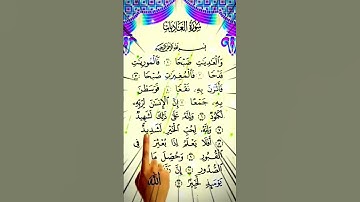 سُورَةُ العَادِيَاتِ
بِسْمِ اللَّهِ الرَّحْمَٰنِ الرَّحِيمِ
وَالْعَٰدِيَٰتِ ضَبْحًا ١ فَالْمُورِيَٰتِ
قَدْحًا ٢ فَالْمُغِيرَٰتِ صُبْحًا ٣
فَأَثَرْنَ بِهِۦ نَقْعًا ٤ فَوَسَطْنَ
بِهِۦ جَمْعًا ٥ إِنَّ الْإِنسَٰنَ لِرَبِّهِۦ
لَكَنُودٌ ٦ وَإِنَّهُۥ عَلَىٰ ذَٰلِكَ لَشَهِيدٌ
٧ وَإِنَّهُۥ لِحُبِّ الْخَيْرِ لَشَدِيدٌ
٨ أَفَلَا يَعْلَمُ إِذَا بُعْثِرَ مَا فِى
الْقُبُورِ ٩ وَحُصِّلَ مَا
الصُّدُورِ ١٠ إِنَّ
يَوْمَئِذٍ لَّخَبِيرٌ ١١
الله